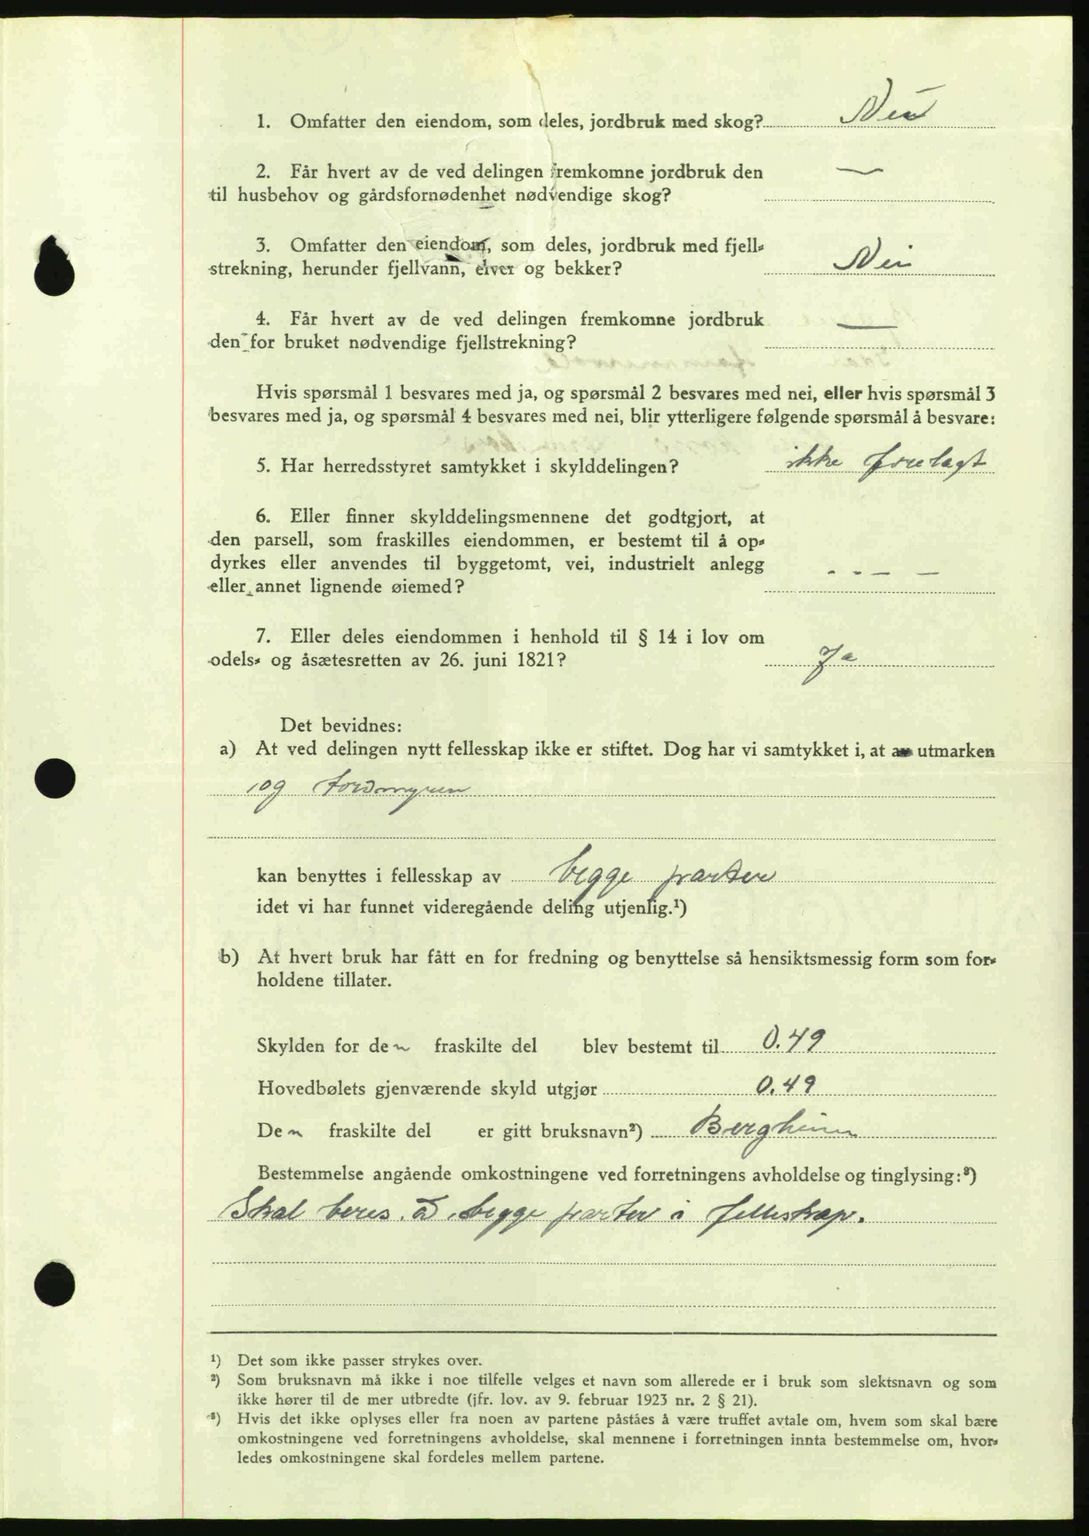 1. Omfatter den eiendom, som deles, jordbruk med skog? Nei
2. Får hvert av de ved delingen fremkomne jordbruk den —
til husbehov og gårdsfornødenhet nødvendige skog?
3. Omfatter den eiendom, som deles, jordbruk med fjell-
strekning, herunder fjellvann, elver og bekker? Nei
4. Får hvert av de ved delingen fremkomne jordbruk —
den for bruket nødvendige fjellstrekning?
Hvis spørsmål 1 besvares med ja, og spørsmål 2 besvares med nei, eller hvis spørsmål 3
besvares med ja, og spørsmål 4 besvares med nei, blir ytterligere følgende spørsmål å besvare:
5. Har herredsstyret samtykket i skylddelingen? ikke forelagt
6. Eller finner skylddelingsmennene det godtgjort, at
den parsell, som fraskilles eiendommen, er bestemt til å op-
dyrkes eller anvendes til byggetomt, vei, industrielt anlegg - - — —
eller annet lignende øiemed?
7. Eller deles eiendommen i henhold til § 14 i lov om
odels- og åsætesretten av 26. juni 1821? Ja
Det bevidnes:
a) At ved delingen nytt fellesskap ikke er stiftet. Dog har vi samtykket i, at utmarken
og torvmyren
kan benyttes i fellesskap av begge parter
idet vi har funnet videregående deling utjenlig.¹)
b) At hvert bruk har fått en for fredning og benyttelse så hensiktsmessig form som for-
holdene tillater.
Skylden for den fraskilte del blev bestemt til 0.49
Hovedbølets gjenværende skyld utgjør 0.49
Den fraskilte del er gitt bruksnavn²) Bergheim
Bestemmelse angående omkostningene ved forretningens avholdelse og tinglysing:³)
Skal beres a begge parter i fellesskap.
¹) Det som ikke passer strykes over.
²) Som bruksnavn må ikke i noe tilfelle velges et navn som allerede er i bruk som slektsnavn og som
ikke hører til de mer utbredte (jfr. lov. av 9. februar 1923 nr. 2 § 21).
³) Hvis det ikke oplyses eller fra noen av partene påståes å være truffet avtale om, hvem som skal bære
omkostningene ved forretningens avholdelse, skal mennene i forretningen innta bestemmelse om, hvor-
ledes omkostningene skal fordeles mellem partene.